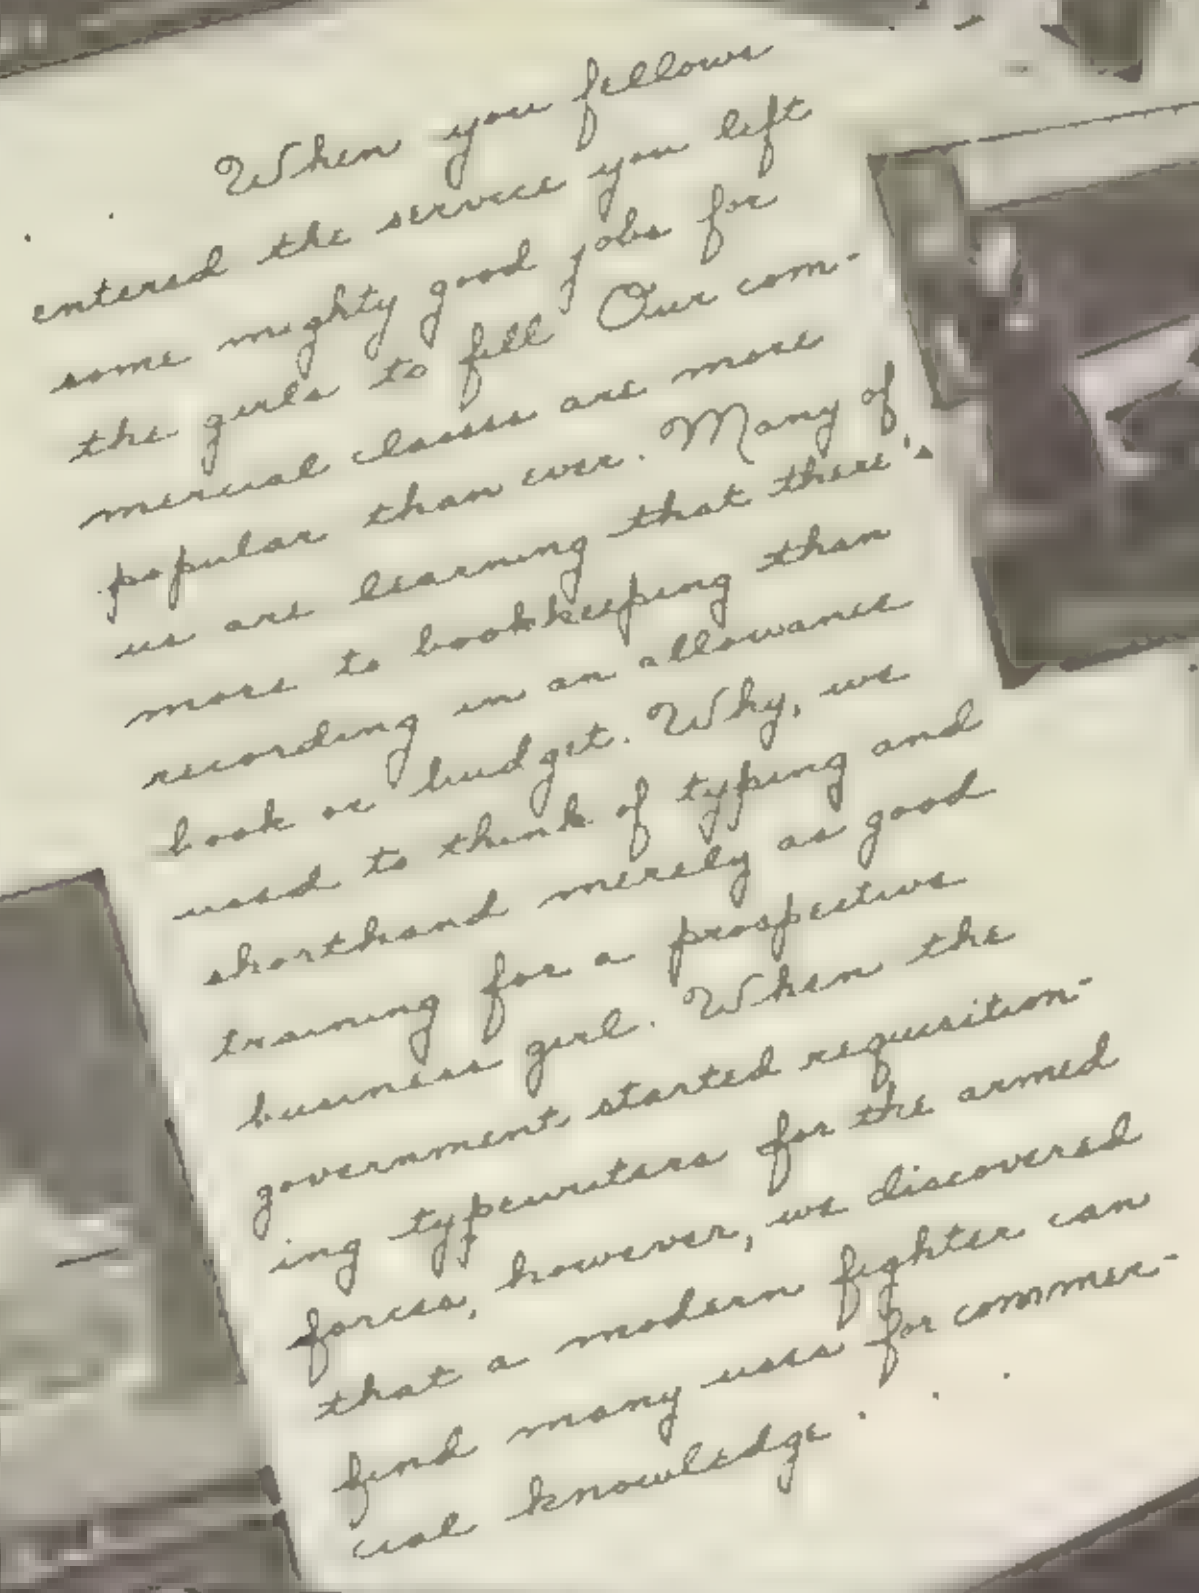 When you fellows
entered the service you left
some mighty good jobs for
the girls to fill Our com-
mercial classes are more
popular than ever. Many of
us are learning that there's
more to bookkeeping than
recording in an allowance
book or budget. Why, we
used to think of typing and
shorthand merely as good
training for a prospective
business girl. When the
government started requisition-
ing typewriters for the armed
forces, however, we discovered
that a modern fighter can
find many uses for commer-
cial knowledge . . .